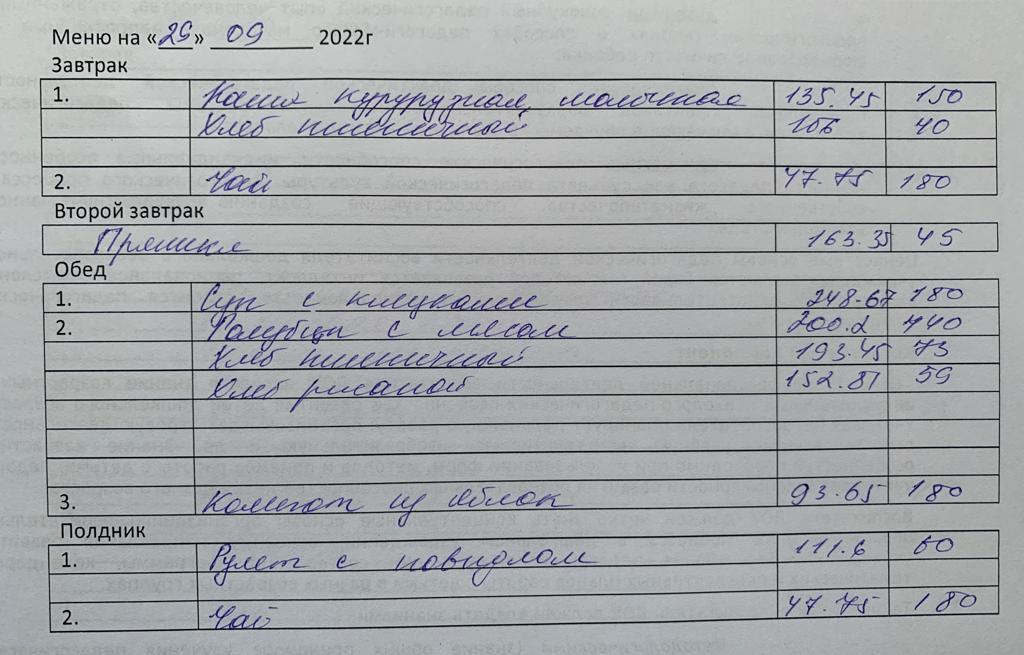 Меню на «29» 09 2022г
Завтрак
1. Каша кукурузная молочная 135.45 150
Хлеб пшеничный 106 40
2. Чай 47.75 180
Второй завтрак
Пряники 163.35 45
Обед
1. Суп с клецками 248.67 180
2. Голубцы с мясом 200.2
Хлеб пшеничный 193.45 73
Хлеб ржаной 152.81 59
3. Компот из яблок 93.65 180
Полдник
1. Рулет с повидлом 111.6 60
2. Чай 47.75 180